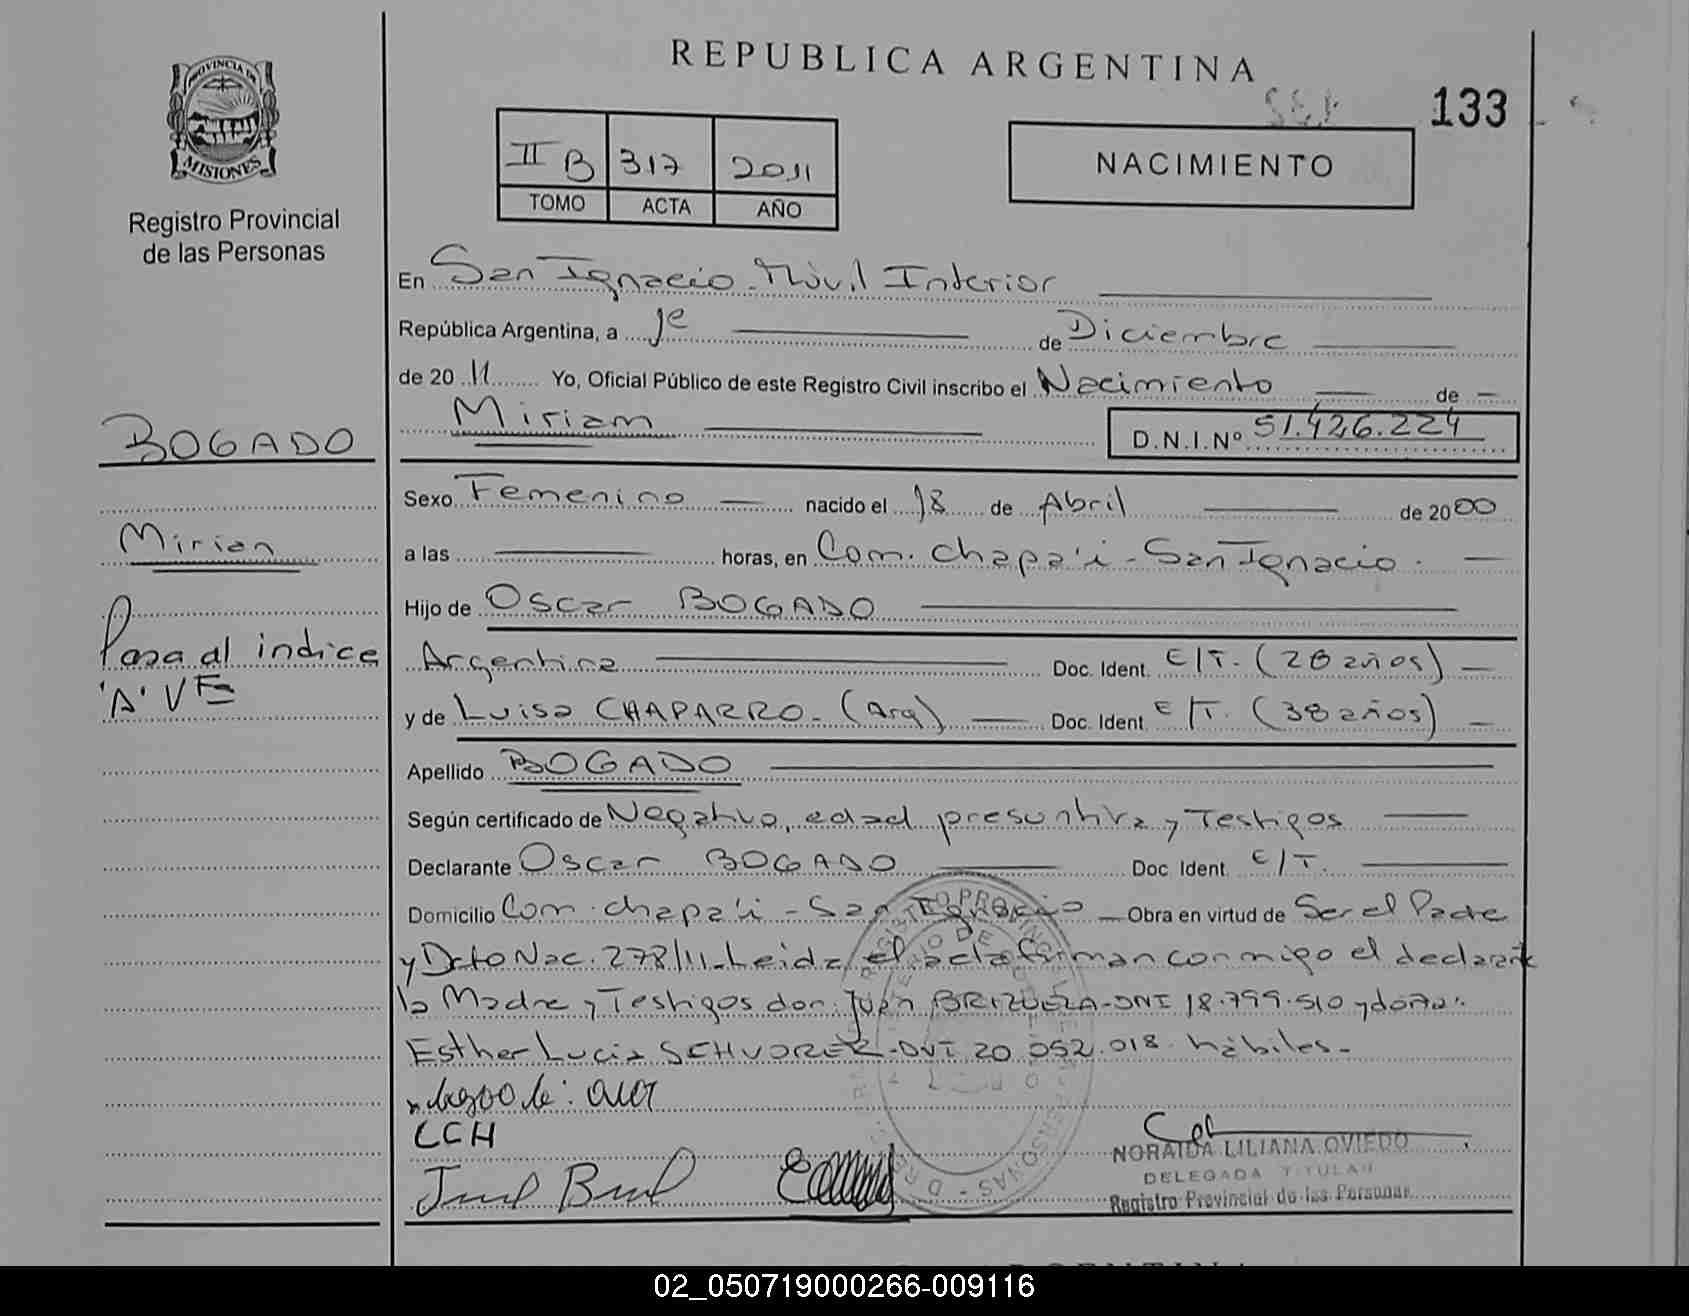 REPUBLICA ARGENTINA
133
PROVINCIA DE
MISIONES
Registro Provincial
de las Personas
II B 317 2011
TOMO ACTA AÑO
NACIMIENTO
En San Ignacio - Móvil Interior
República Argentina, a 1º de Diciembre
de 20 11 Yo, Oficial Público de este Registro Civil inscribo el Nacimiento de
Miriam D.N.I.Nº 51.426.224
BOGADO
Mirian
Pasa al indice
"A" VE
Sexo Femenino nacido el 18 de Abril de 2000
a las horas, en Com. Chapa'i - San Ignacio.
Hijo de Oscar BOGADO
Argentina Doc. Ident. E/T. (28 años)
y de Luisa CHAPARRO - (Arg) Doc. Ident. E/T. (38 años)
Apellido BOGADO
Según certificado de Negativo, edad presuntiva y Testigos
Declarante Oscar BOGADO Doc. Ident. E/T.
Domicilio Com. Chapa'i - San Ignacio Obra en virtud de Ser el Padre
y Dcto Nac. 278/11 - Leida el acta firman conmigo el declarante
la Madre y Testigos don: Juan BRIZUELA - DNI 18.799.510 y doña:
Esther Lucia - DNI 20.052.018 hábiles -
LCH
NORAIDA LILIANA OVIEDO
DELEGADA TITULAR
Registro Provincial de las Personas
02_050719000266-009116